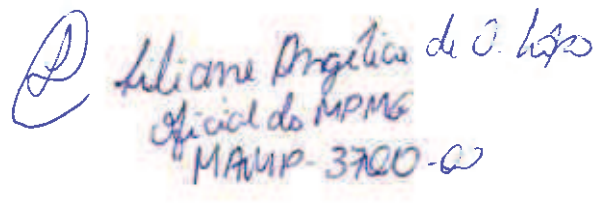 Liliane Angélica de O. Lopo
Oficial do MPMG
MAMP-3700-00